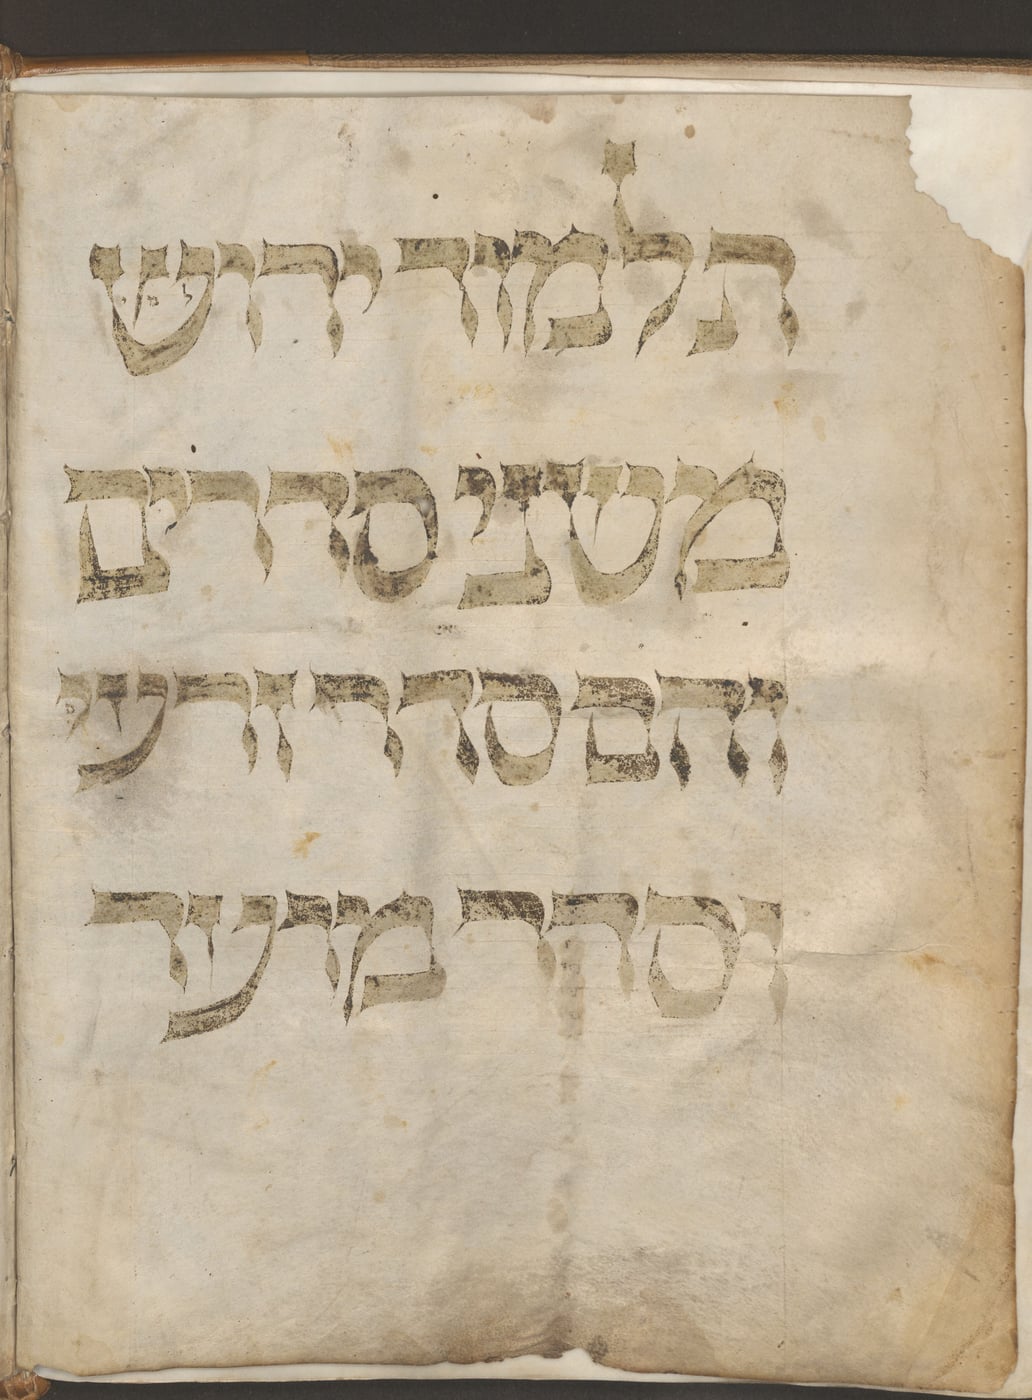 תלמוד ירוש למי
משני סדרים
והם סדר זרעי
וסדר מועד